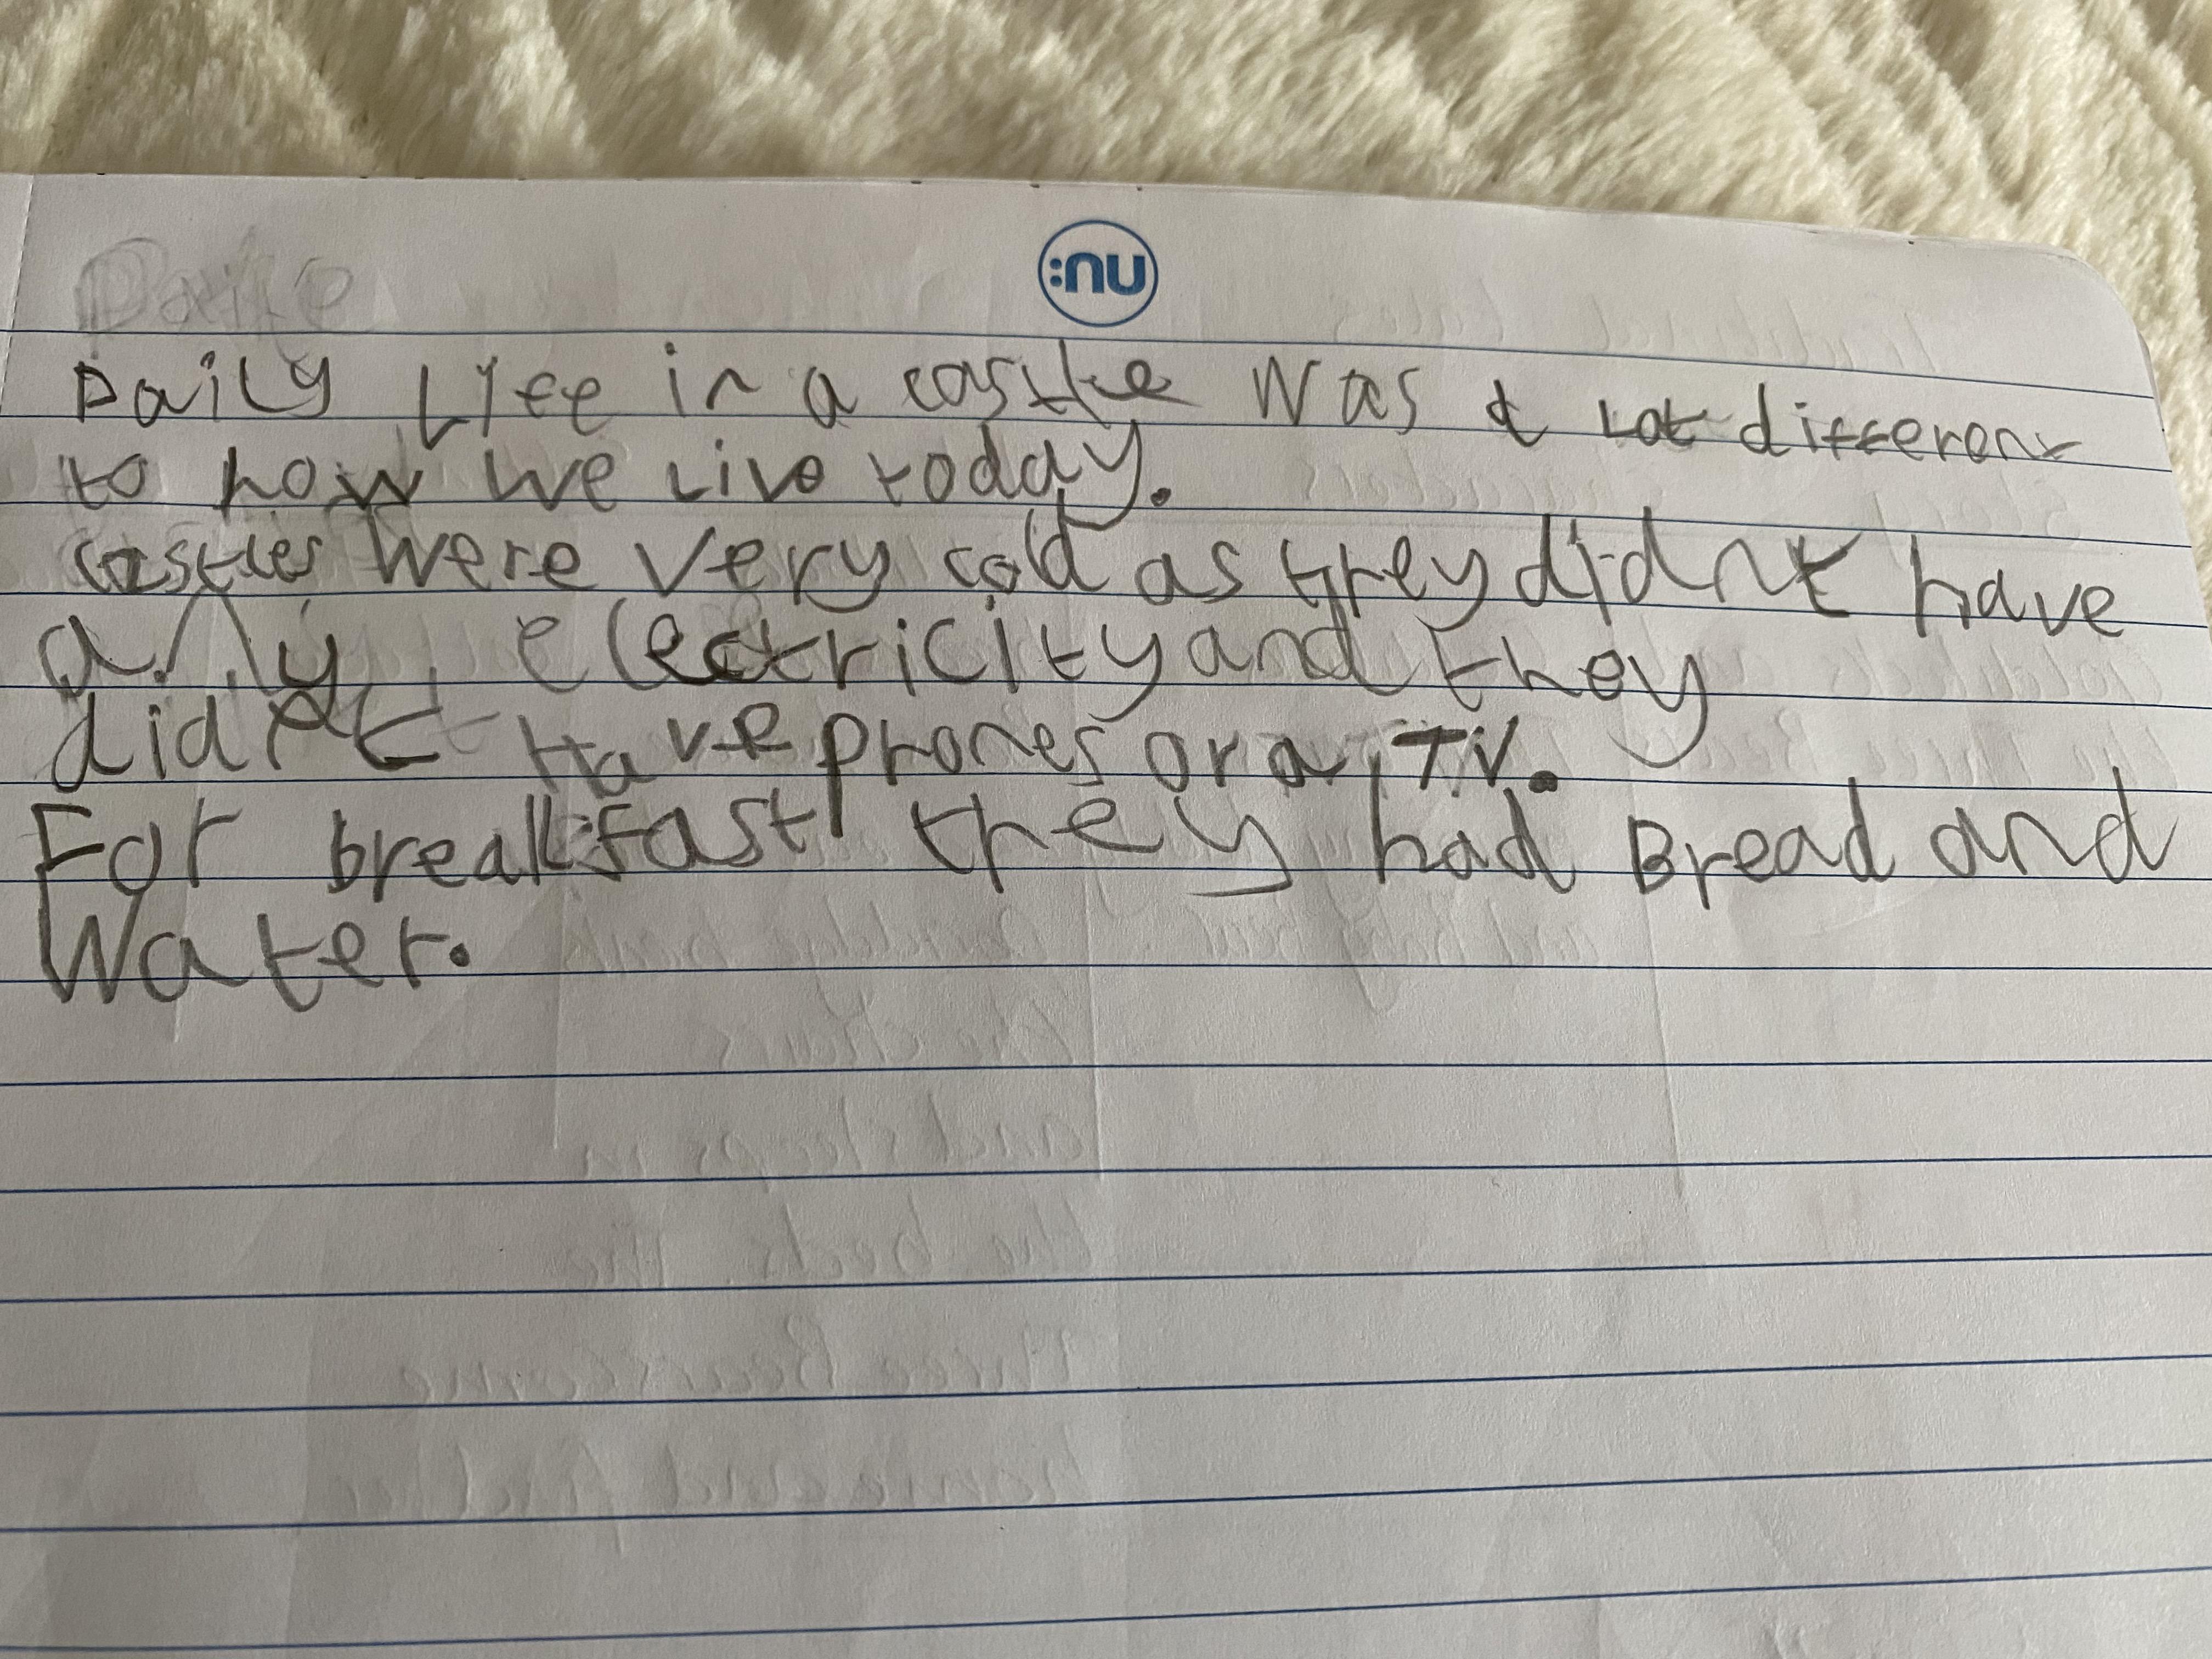 :nu
Daily Life in a castle was a lot different
to how we live today.
castles were very cold as they didnt have
any electricity and they
didnt Have phones or a TV.
For breakfast they had Bread and
Water.